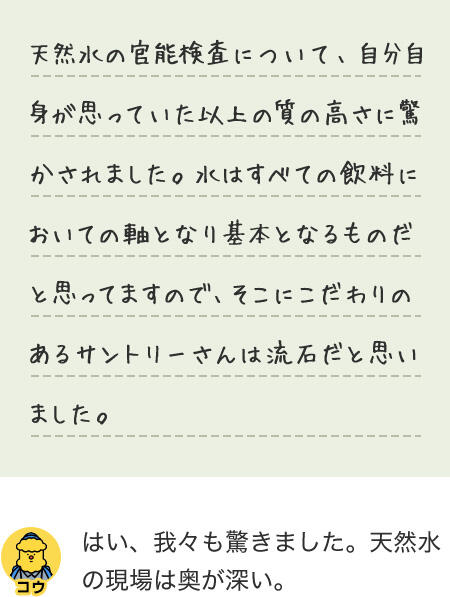 天然水の官能検査について、自分自
身が思っていた以上の質の高さに驚
かされました。水はすべての飲料に
おいての軸となり基本となるものだ
と思ってますので、そこにこだわりの
あるサントリーさんは流石だと思い
ました。
はい、我々も驚きました。天然水
の現場は奥が深い。
コウ